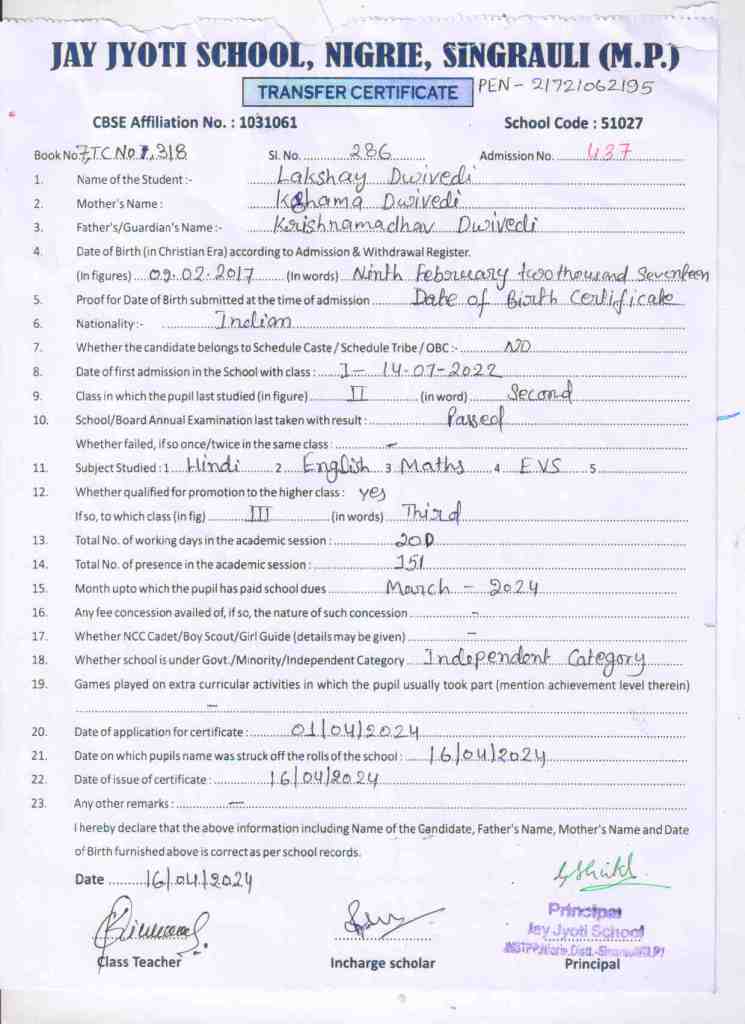 JAY JYOTI SCHOOL, NIGRIE, SINGRAULI (M.P.)
TRANSFER CERTIFICATE PEN - 21721062195
CBSE Affiliation No. : 1031061 School Code : 51027
Book No. 7, TC No 318 Sl. No. 286 Admission No. 437
1. Name of the Student :- Lakshay Dwivedi
2. Mother's Name : Kshama Dwivedi
3. Father's/Guardian's Name :- Krishnamadhav Dwivedi
4. Date of Birth (in Christian Era) according to Admission & Withdrawal Register.
(In figures) 09.02.2017 (In words) Ninth February two thousand Seventeen
5. Proof for Date of Birth submitted at the time of admission Date of Birth Certificate
6. Nationality:- Indian
7. Whether the candidate belongs to Schedule Caste / Schedule Tribe / OBC :- NO
8. Date of first admission in the School with class : I - 14-07-2022
9. Class in which the pupil last studied (in figure) II (in word) Second
10. School/Board Annual Examination last taken with result : Passed
Whether failed, if so once/twice in the same class : -
11. Subject Studied : 1 Hindi 2 English 3 Maths 4 EVS 5
12. Whether qualified for promotion to the higher class : yes
If so, to which class (in fig) III (in words) Third
13. Total No. of working days in the academic session : 200
14. Total No. of presence in the academic session : 151
15. Month upto which the pupil has paid school dues March - 2024
16. Any fee concession availed of, if so, the nature of such concession -
17. Whether NCC Cadet/Boy Scout/Girl Guide (details may be given) -
18. Whether school is under Govt./Minority/Independent Category Independent Category
19. Games played on extra curricular activities in which the pupil usually took part (mention achievement level therein)
-
20. Date of application for certificate : 01/04/2024
21. Date on which pupils name was struck off the rolls of the school : 16/04/2024
22. Date of issue of certificate : 16/04/2024
23. Any other remarks : -
I hereby declare that the above information including Name of the Candidate, Father's Name, Mother's Name and Date
of Birth furnished above is correct as per school records.
Date 16/04/2024
Principal
Jay Jyoti School
Class Teacher Incharge scholar Principal